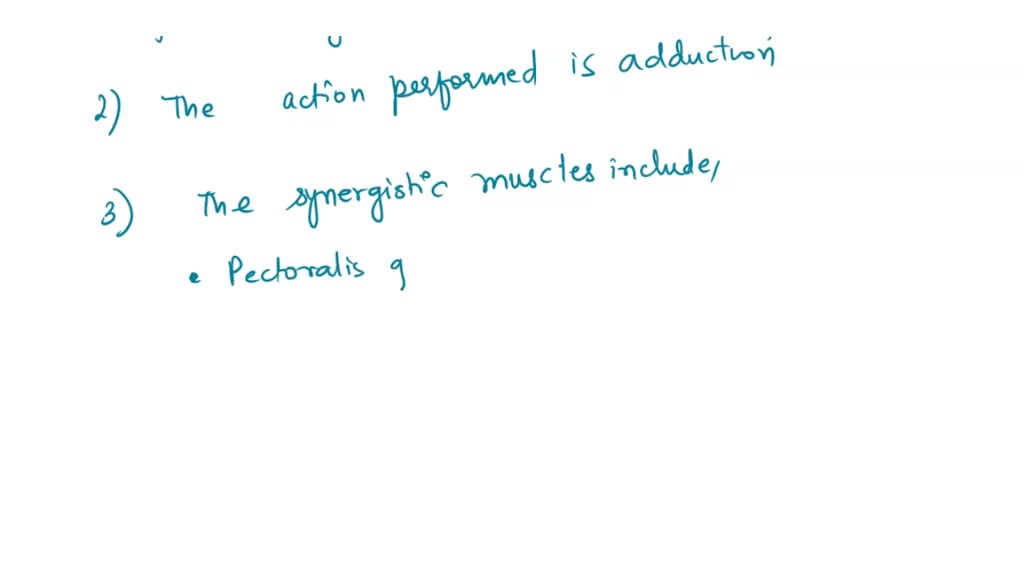 2) The action performed is adduction
3) The synergistic muscles include,
• Pectoralis g